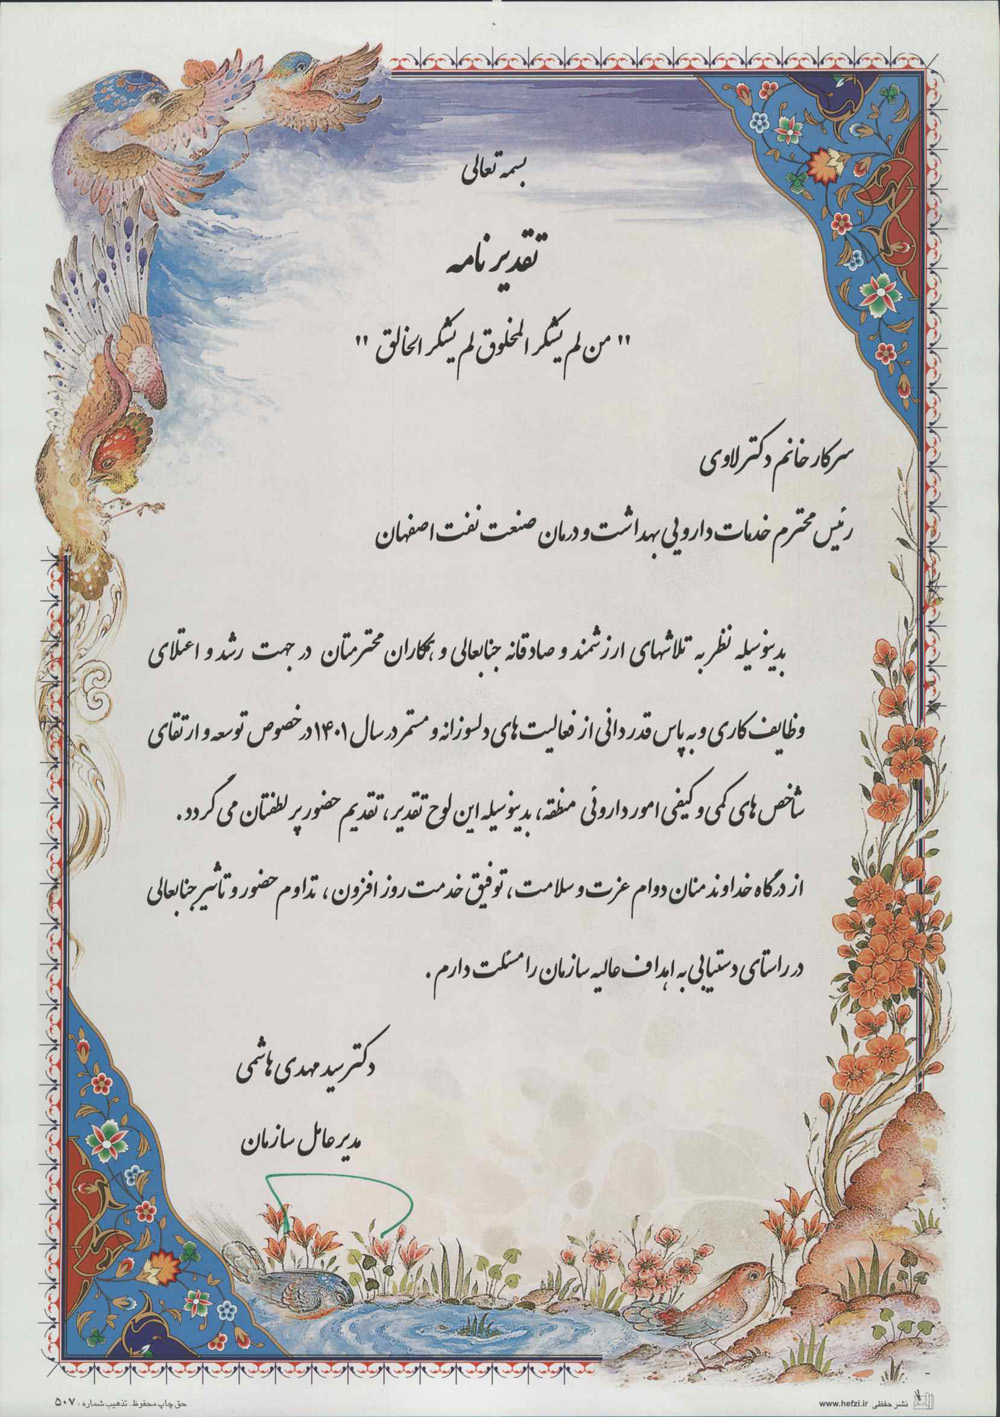 بسمه تعالی
تقدیر نامه
" من لم یشکر المخلوق لم یشکر الخالق "
سرکار خانم دکتر لاوی
رئیس محترم خدمات دارویی بهداشت و درمان صنعت نفت اصفهان
بدینوسیله نظر به تلاشهای ارزشمند و صادقانه جنابعالی و همکاران محترمتان در جهت رشد و اعتلای
وظایف کاری و به پاس قدردانی از فعالیت های دلسوزانه و مستمر در سال ۱۴۰۱ در خصوص توسعه و ارتقای
شاخص های کمی و کیفی امور داروئی منطقه، بدینوسیله این لوح تقدیر، تقدیم حضور پر لطفتان می گردد.
از درگاه خداوند منان دوام عزت و سلامت، توفیق خدمت روز افزون، تداوم حضور و تاثیر جنابعالی
در راستای دستیابی به اهداف عالیه سازمان را مسئلت دارم.
دکتر سید مهدی هاشمی
مدیر عامل سازمان
نشر حفظی www.hefzi.ir
حق چاپ محفوظ. تذهیب شماره: ۵۰۷